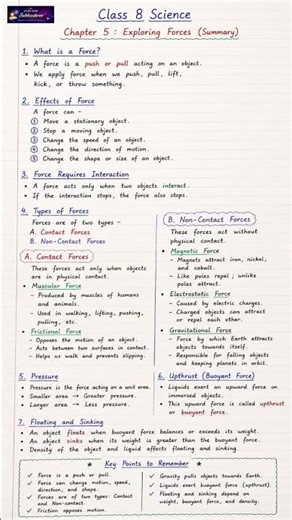 Class 8 Science
Chapter 5 : Exploring Forces (Summary)
1. What is a Force?
• A force is a push or pull acting on an object.
• We apply force when we push, pull, lift,
kick, or throw something.
2. Effects of Force
A force can -
1 Move a stationary object.
2 Stop a moving object.
3 Change the speed of an object.
4 Change the direction of motion.
5 Change the shape or size of an object.
3. Force Requires Interaction
• A force acts only when two objects interact.
• If the interaction stops, the force also stops.
4. Types of Forces
Forces are of two types -
A. Contact Forces
B. Non-Contact Forces
A. Contact Forces
These forces act only when objects
are in physical contact.
• Muscular Force
- Produced by muscles of humans
and animals.
- Used in walking, lifting, pushing,
pulling, etc.
• Frictional Force
- Opposes the motion of an object.
- Acts between two surfaces in contact.
- Helps us walk and prevents slipping.
B. Non-Contact Forces
These forces act without
physical contact.
• Magnetic Force
- Magnets attract iron, nickel,
and cobalt.
- Like poles repel; unlike
poles attract.
• Electrostatic Force
- Caused by electric charges.
- Charged objects can attract
or repel each other.
• Gravitational Force
- Force by which Earth attracts
objects towards itself.
- Responsible for falling objects
and keeping planets in orbit.
5. Pressure
• Pressure is the force acting on a unit area.
• Smaller area → Greater pressure.
• Larger area → Less pressure.
6. Upthrust (Buoyant Force)
• Liquids exert an upward force on
immersed objects.
• This upward force is called upthrust
or buoyant force.
7. Floating and Sinking
• An object floats when buoyant force balances or exceeds its weight.
• An object sinks when its weight is greater than the buoyant force.
• Density of the object and liquid affects floating and sinking.
Key Points to Remember
✓ Force is a push or pull.
✓ Force can change motion, speed,
direction, and shape.
✓ Forces are of two types: Contact
and Non-contact.
✓ Friction opposes motion.
✓ Gravity pulls objects towards Earth.
✓ Liquids exert buoyant force (upthrust).
✓ Floating and sinking depend on
weight, buoyant force, and density.